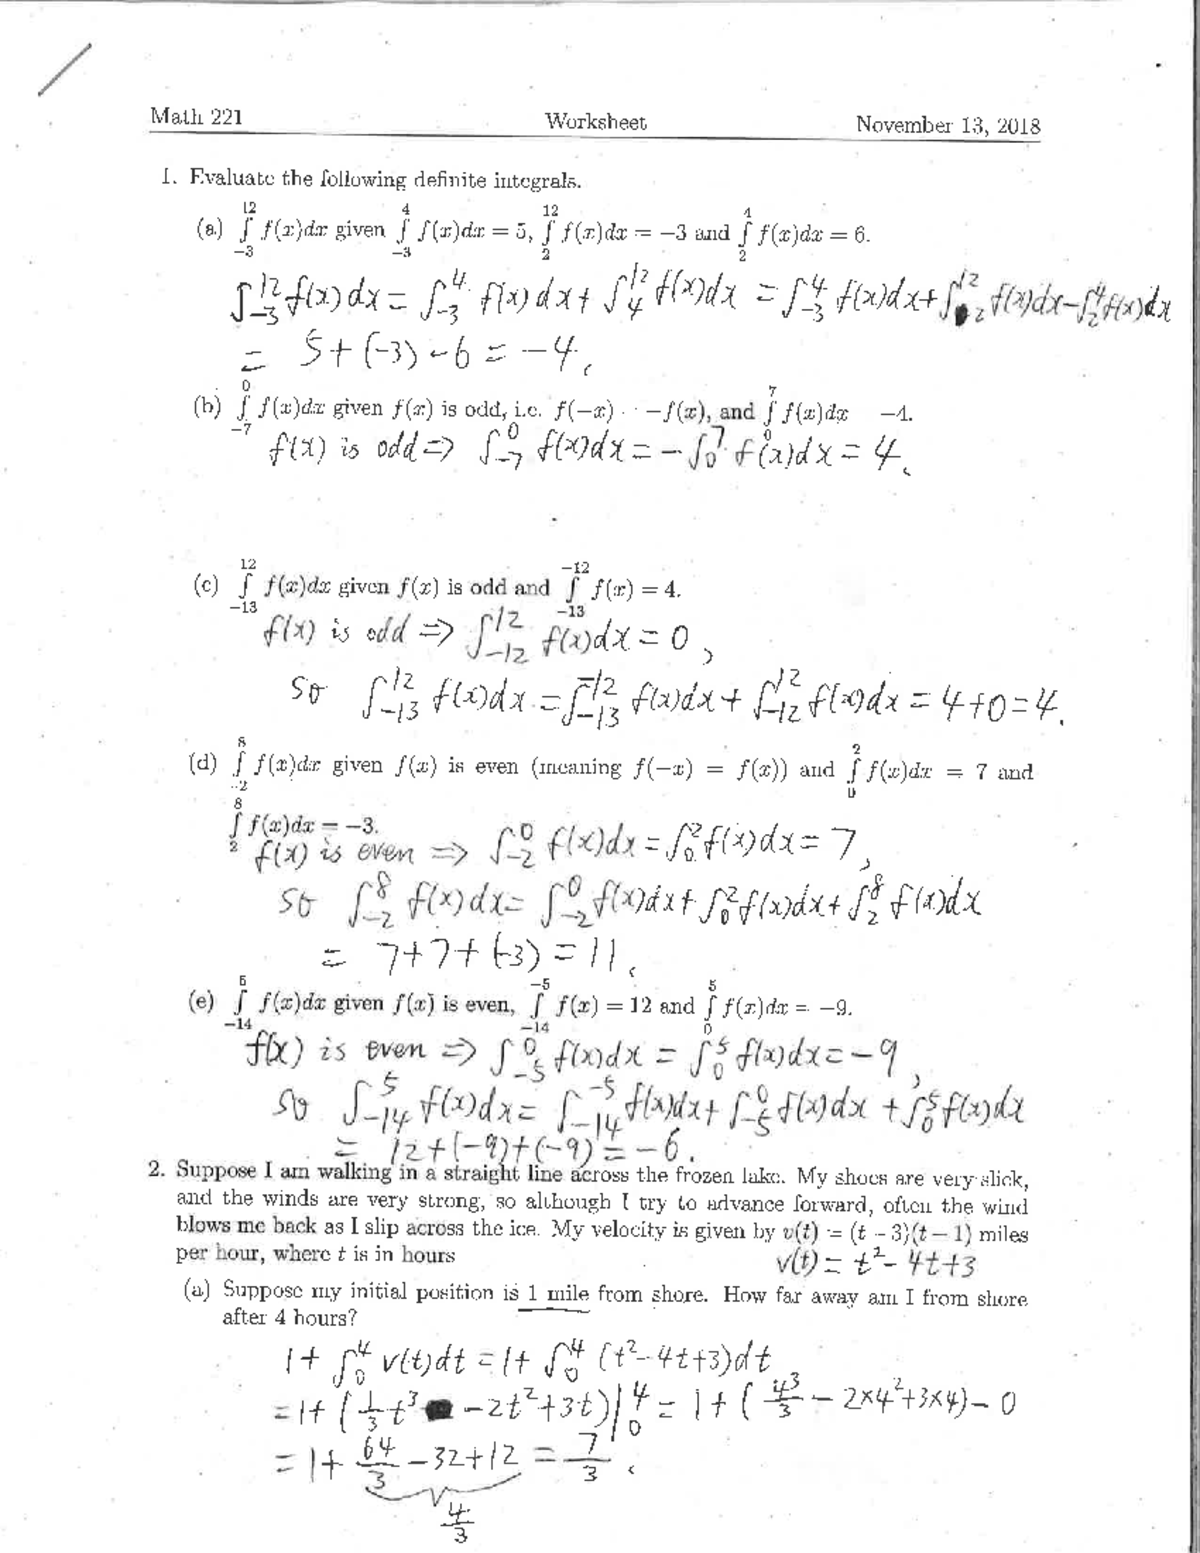 Math 221 Worksheet November 13, 2018
1. Evaluate the following definite integrals.
(a) ∫_{-3}^{12} f(x)dx given ∫_{-3}^{4} f(x)dx = 5, ∫_{2}^{12} f(x)dx = −3 and ∫_{2}^{4} f(x)dx = 6.
∫_{-3}^{12} f(x)dx = ∫_{-3}^{4} f(x)dx + ∫_{4}^{12} f(x)dx = ∫_{-3}^{4} f(x)dx + ∫_{2}^{12} f(x)dx − ∫_{2}^{4} f(x)dx
= 5+(-3)-6 = -4.
(b) ∫_{-7}^{0} f(x)dx given f(x) is odd, i.e. f(−x) −f(x), and ∫_{0}^{7} f(x)dx −4.
f(x) is odd => ∫_{-7}^{0} f(x)dx = -∫_{0}^{7} f(x)dx = 4.
(c) ∫_{-13}^{12} f(x)dx given f(x) is odd and ∫_{-13}^{-12} f(x) = 4.
f(x) is odd => ∫_{-12}^{12} f(x)dx = 0,
so ∫_{-13}^{12} f(x)dx = ∫_{-13}^{-12} f(x)dx + ∫_{-12}^{12} f(x)dx = 4+0=4.
(d) ∫_{-2}^{8} f(x)dx given f(x) is even (meaning f(−x) = f(x)) and ∫_{0}^{2} f(x)dx = 7 and
∫_{2}^{8} f(x)dx = −3.
f(x) is even => ∫_{-2}^{0} f(x)dx = ∫_{0}^{2} f(x)dx = 7,
so ∫_{-2}^{8} f(x)dx = ∫_{-2}^{0} f(x)dx + ∫_{0}^{2} f(x)dx + ∫_{2}^{8} f(x)dx
= 7+7+(-3) = 11.
(e) ∫_{-14}^{5} f(x)dx given f(x) is even, ∫_{-14}^{-5} f(x) = 12 and ∫_{0}^{5} f(x)dx = −9.
f(x) is even => ∫_{-5}^{0} f(x)dx = ∫_{0}^{5} f(x)dx = -9,
so ∫_{-14}^{5} f(x)dx = ∫_{-14}^{-5} f(x)dx + ∫_{-5}^{0} f(x)dx + ∫_{0}^{5} f(x)dx
= 12+(-9)+(-9) = -6.
2. Suppose I am walking in a straight line across the frozen lake. My shoes are very slick,
and the winds are very strong, so although I try to advance forward, often the wind
blows me back as I slip across the ice. My velocity is given by v(t) = (t − 3)(t − 1) miles
per hour, where t is in hours
v(t) = t²- 4t+3
(a) Suppose my initial position is 1 mile from shore. How far away am I from shore
after 4 hours?
1+ ∫_{0}^{4} v(t)dt = 1+ ∫_{0}^{4} (t²-4t+3)dt
= 1+ (1/3 t³ -2t²+3t)|_{0}^{4} = 1+ (4³/3 - 2×4²+3×4) - 0
= 1+ 64/3 -32+12 = 7/3.
4/3